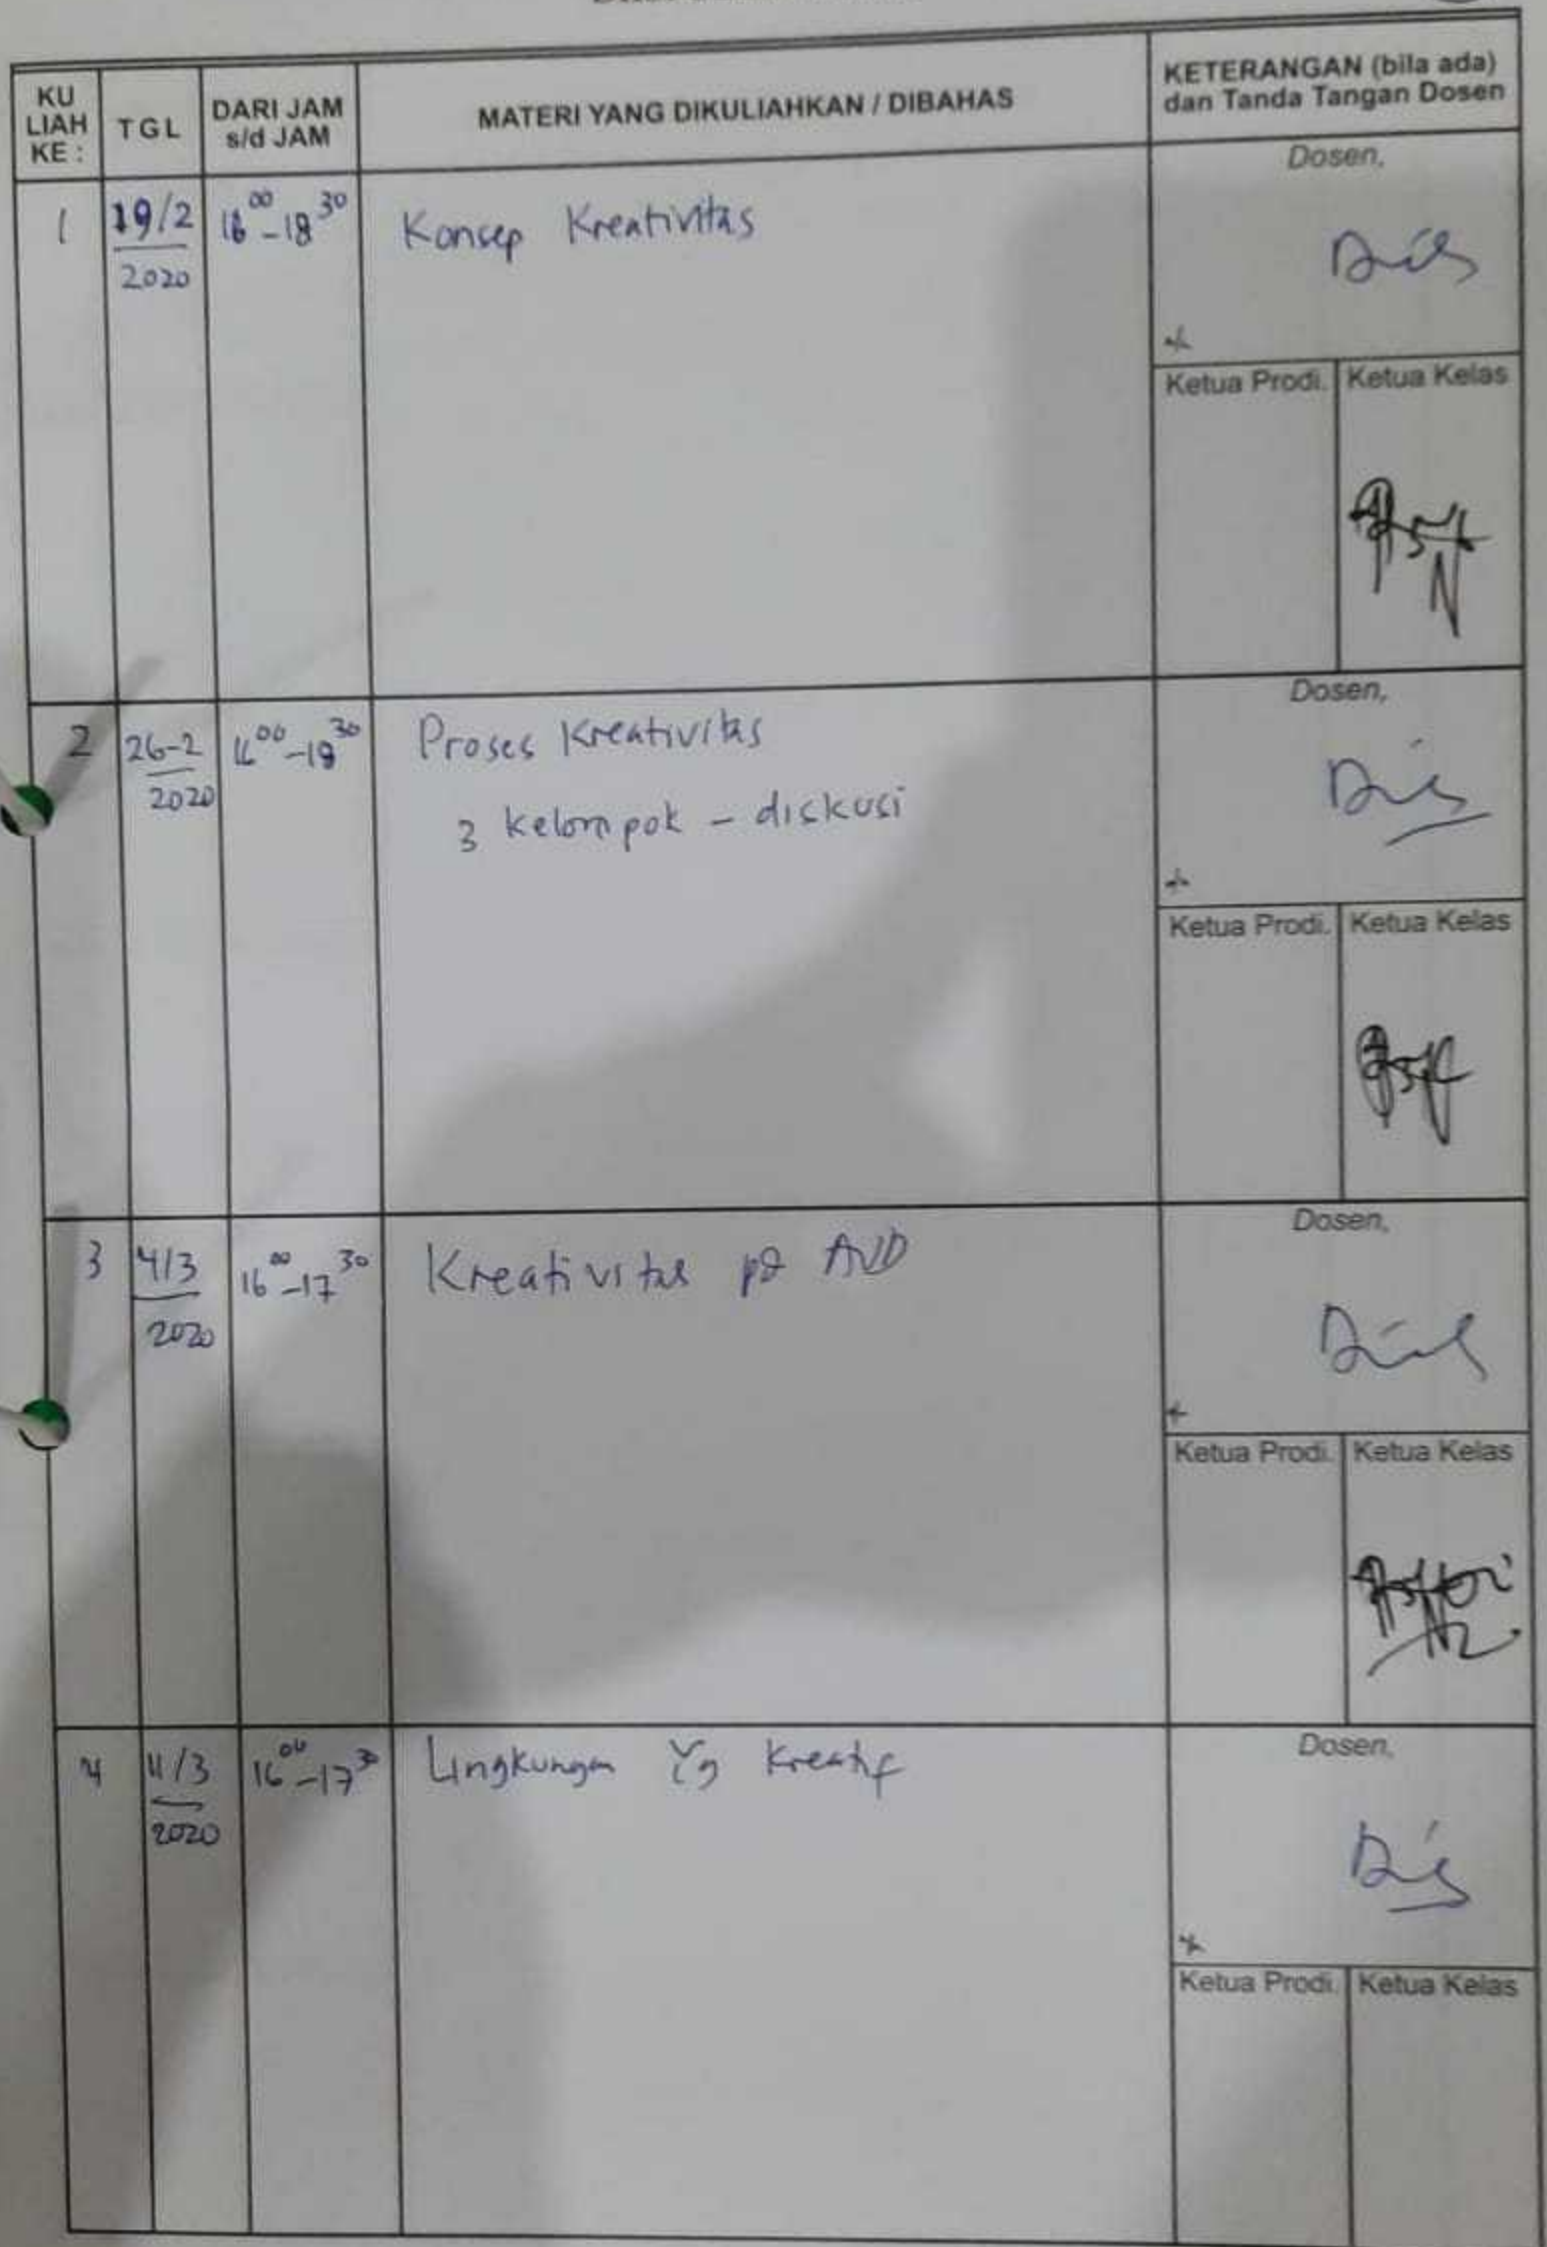 KU
LIAH
KE :
TGL
DARI JAM
s/d JAM
MATERI YANG DIKULIAHKAN / DIBAHAS
KETERANGAN (bila ada)
dan Tanda Tangan Dosen
1
19/2
2020
16 00 - 18 30
Konsep Kreativitas
Dosen,
Ketua Prodi.
Ketua Kelas
2
26-2
2020
16 00 - 18 30
Proses Kreativitas
3 kelompok - diskusi
Dosen,
Ketua Prodi.
Ketua Kelas
3
4/3
2020
16 00 - 17 30
Kreativitas pd AUD
Dosen,
Ketua Prodi.
Ketua Kelas
4
11/3
2020
16 00 - 17 30
Lingkungan Yg Kreatif
Dosen,
Ketua Prodi.
Ketua Kelas